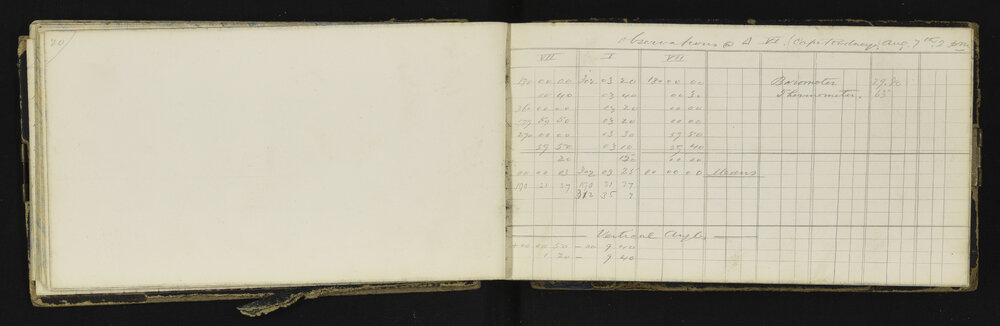 20
Observations @ Δ VI (Cape Sidney) Aug 7th
VII I VII
00 00 302 03 20 180 00 00 Barometer 29.80
00 40 03 40 00 30 Thermometer 65
00 00 03 20 00 00
59 50 03 20 00 00
270 00 00 03 30 59 50
59 50 03 10 59 40
20 120 00 00
00 00 03 302 03 25 00 00 00 Means
190 31 37 190 31 37
312 35 2
Vertical Angles
00 50 - 00 9 40
1 20 - 9 40